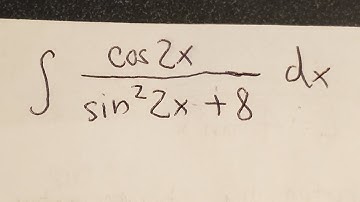 ∫ cos2x / (sin²2x + 8) dx